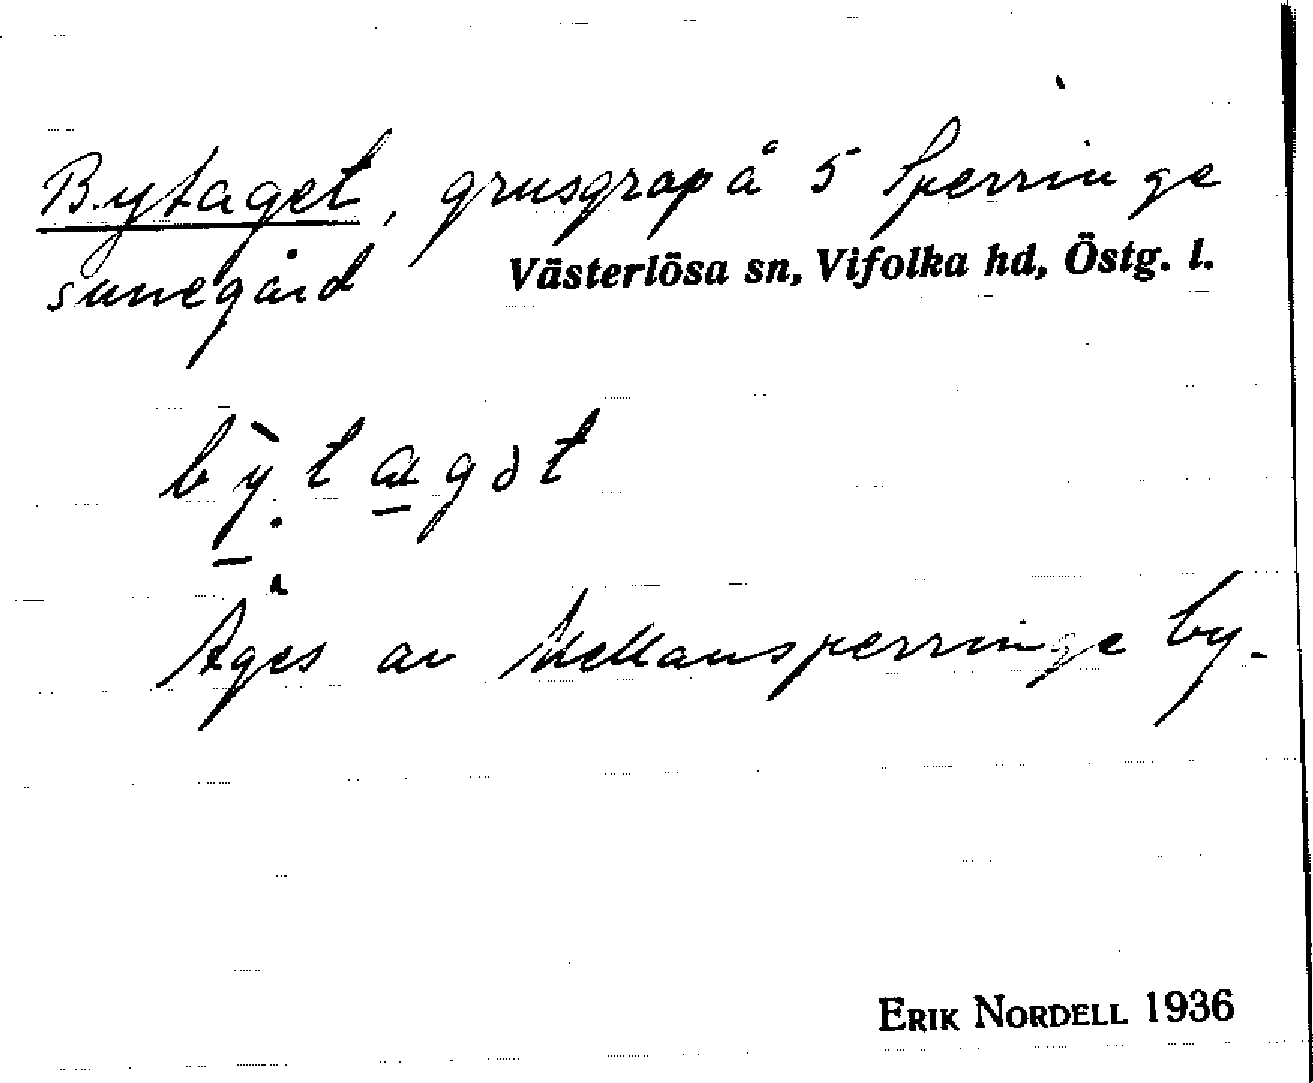 Bytaget, grusgrop å 5 Sperringe
sunegård Västerlösa sn, Vifolka hd, Östg. l.
bỳ.tagət
Äges av Mellansperringe by.
ERIK NORDELL 1936